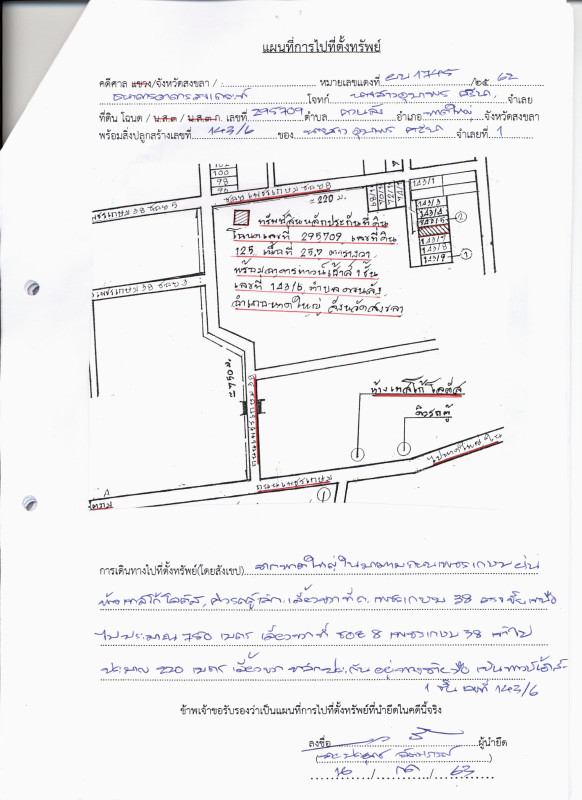 แผนที่การไปที่ตั้งทรัพย์
คดีศาล แขวง/จังหวัดสงขลา / หมายเลขแดงที่ ผบ 1745 /๒๕ 62
ธนาคารอาคารสงเคราะห์ โจทก์ นางสาวอุมาพร จำเลย
ที่ดิน โฉนด / น.ส.๓ / น.ส.๓ ก. เลขที่ 295709 ตำบล ควนลัง อำเภอ หาดใหญ่ จังหวัดสงขลา
พร้อมสิ่งปลูกสร้างเลขที่ 143/6 ของ นางสาว อุมาพร จำเลยที่ 1
100
98
96
ซอย เพชรเกษม ซอย 8
≈ 220 ม.
143/1
143/3
143/4
143/5
143/7
143/8
143/9
2
1
ทรัพย์สินหลักประกันที่ดิน
โฉนดเลขที่ 295709 เลขที่ดิน
125 เนื้อที่ 25.7 ตารางวา
พร้อมอาคารทาวน์เฮ้าส์ 1 ชั้น
เลขที่ 143/6 ตำบลควนลัง
อำเภอหาดใหญ่ จังหวัดสงขลา
เพชรเกษม 38 ซอย 5
เพชรเกษม 38 ซอย 3
≈ 750 ม.
ห้างเทสโก้ โลตัส
คิวรถตู้
ถนนเพชรเกษม
ไปหาดใหญ่ใน
การเดินทางไปที่ตั้งทรัพย์(โดยสังเขป) จากหาดใหญ่ในมาตามถนนเพชรเกษม ผ่าน
ห้างเทสโก้ โลตัส, คิวรถตู้ เลี้ยวขวาที่ ถ. เพชรเกษม 38 ตรง
ไปประมาณ 750 เมตร เลี้ยวขวาที่ ซอย 8 เพชรเกษม 38 เข้าไป
ประมาณ 220 เมตร เลี้ยวขวา หลักประกัน อยู่ทางซ้ายมือ เป็นทาวน์เฮ้าส์
1 ชั้น เลขที่ 143/6
ข้าพเจ้าขอรับรองว่าเป็นแผนที่การไปที่ตั้งทรัพย์ที่นำยึดในคดีนี้จริง
ลงชื่อ ผู้นำยึด
16 / / 63